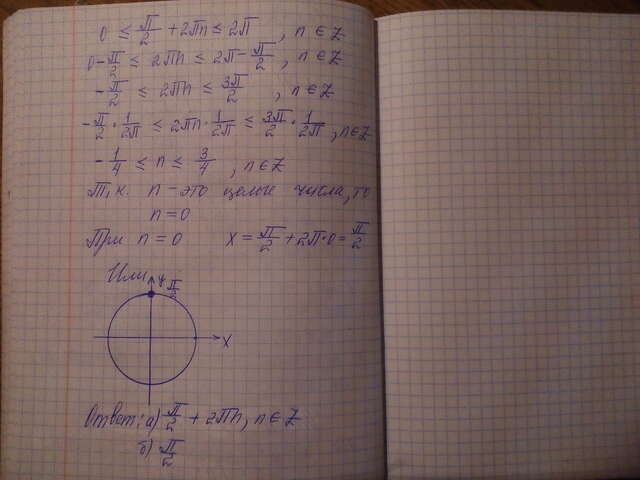 0 ≤ π/2 + 2πn ≤ 2π, n ∈ Z
0 - π/2 ≤ 2πn ≤ 2π - π/2, n ∈ Z
- π/2 ≤ 2πn ≤ 3π/2, n ∈ Z
- π/2 · 1/2π ≤ 2πn · 1/2π ≤ 3π/2 · 1/2π, n ∈ Z
- 1/4 ≤ n ≤ 3/4, n ∈ Z
Т.к. n - это целые числа, то
n = 0
При n = 0 x = π/2 + 2π·0 = π/2
Или
y π/2
x
Ответ: а) π/2 + 2πn, n ∈ Z
б) π/2